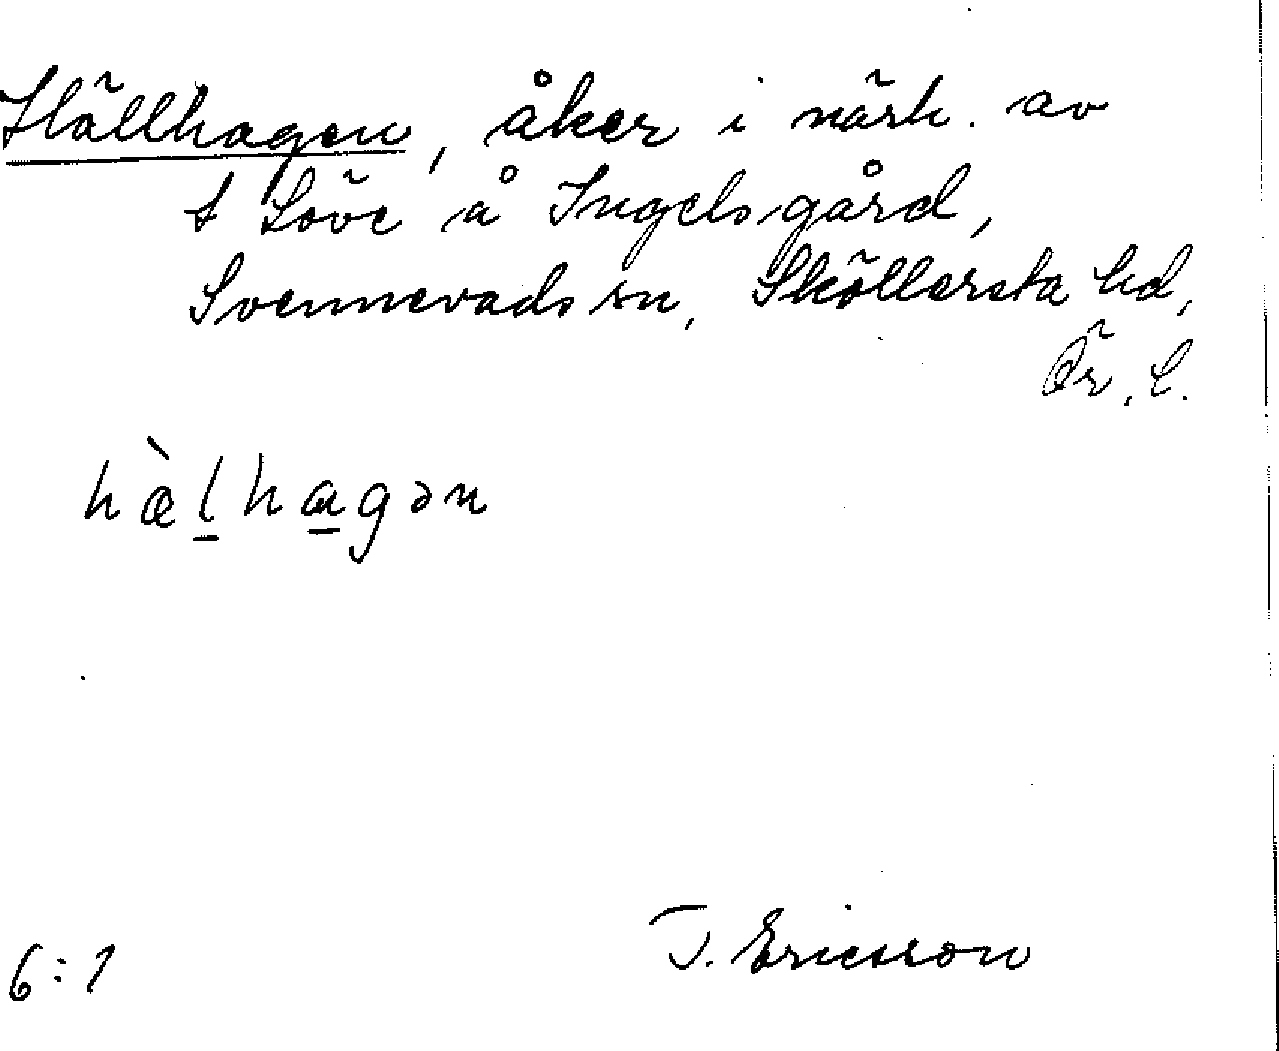 Hällhagen, åker i närh. av
t Löve å Ingelsgård,
Svennevads sn, Sköllersta hd,
Ör. L.
hæ̀l̠ha̠gən
6:1
T. Ericsson